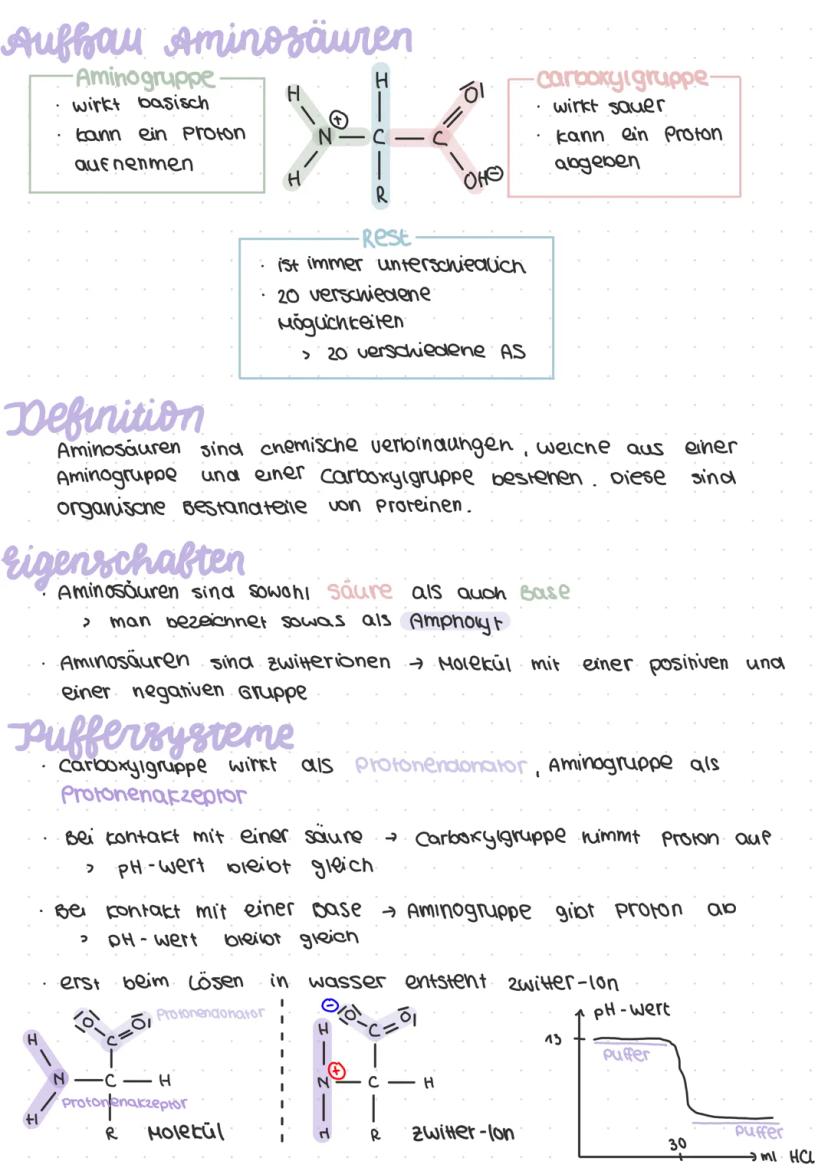 Aufbau Aminosäuren
Aminogruppe
· wirkt basisch
· kann ein Proton
aufnehmen
H
H
N
⊕
H
C
R
C
O
OH⊖
Carboxylgruppe
· wirkt sauer
· kann ein Proton
abgeben
Rest
· ist immer unterschiedlich
· 20 verschiedene
Möglichkeiten
> 20 verschiedene AS
Definition
Aminosäuren sind chemische Verbindungen, welche aus einer
Aminogruppe und einer Carboxylgruppe bestehen. Diese sind
organische Bestandteile von Proteinen.
Eigenschaften
· Aminosäuren sind sowohl Säure als auch Base
> man bezeichnet sowas als Ampholyt
· Aminosäuren sind Zwitterionen → Molekül mit einer positiven und
einer negativen Gruppe
Puffersysteme
· Carboxylgruppe wirkt als Protonendonator, Aminogruppe als
Protonenakzeptor
· Bei Kontakt mit einer Säure → Carboxylgruppe nimmt Proton auf
> pH-Wert bleibt gleich
· Bei Kontakt mit einer Base → Aminogruppe gibt Proton ab
> pH-Wert bleibt gleich
· erst beim Lösen in Wasser entsteht Zwitter-Ion
O
O
Protonendonator
H
C
N
C
H
Protonenakzeptor
H
R
Molekül
⊖
O
O
H
C
⊕
N
C
H
H
R
Zwitter-Ion
pH-Wert
13
Puffer
Puffer
30
ml HCl